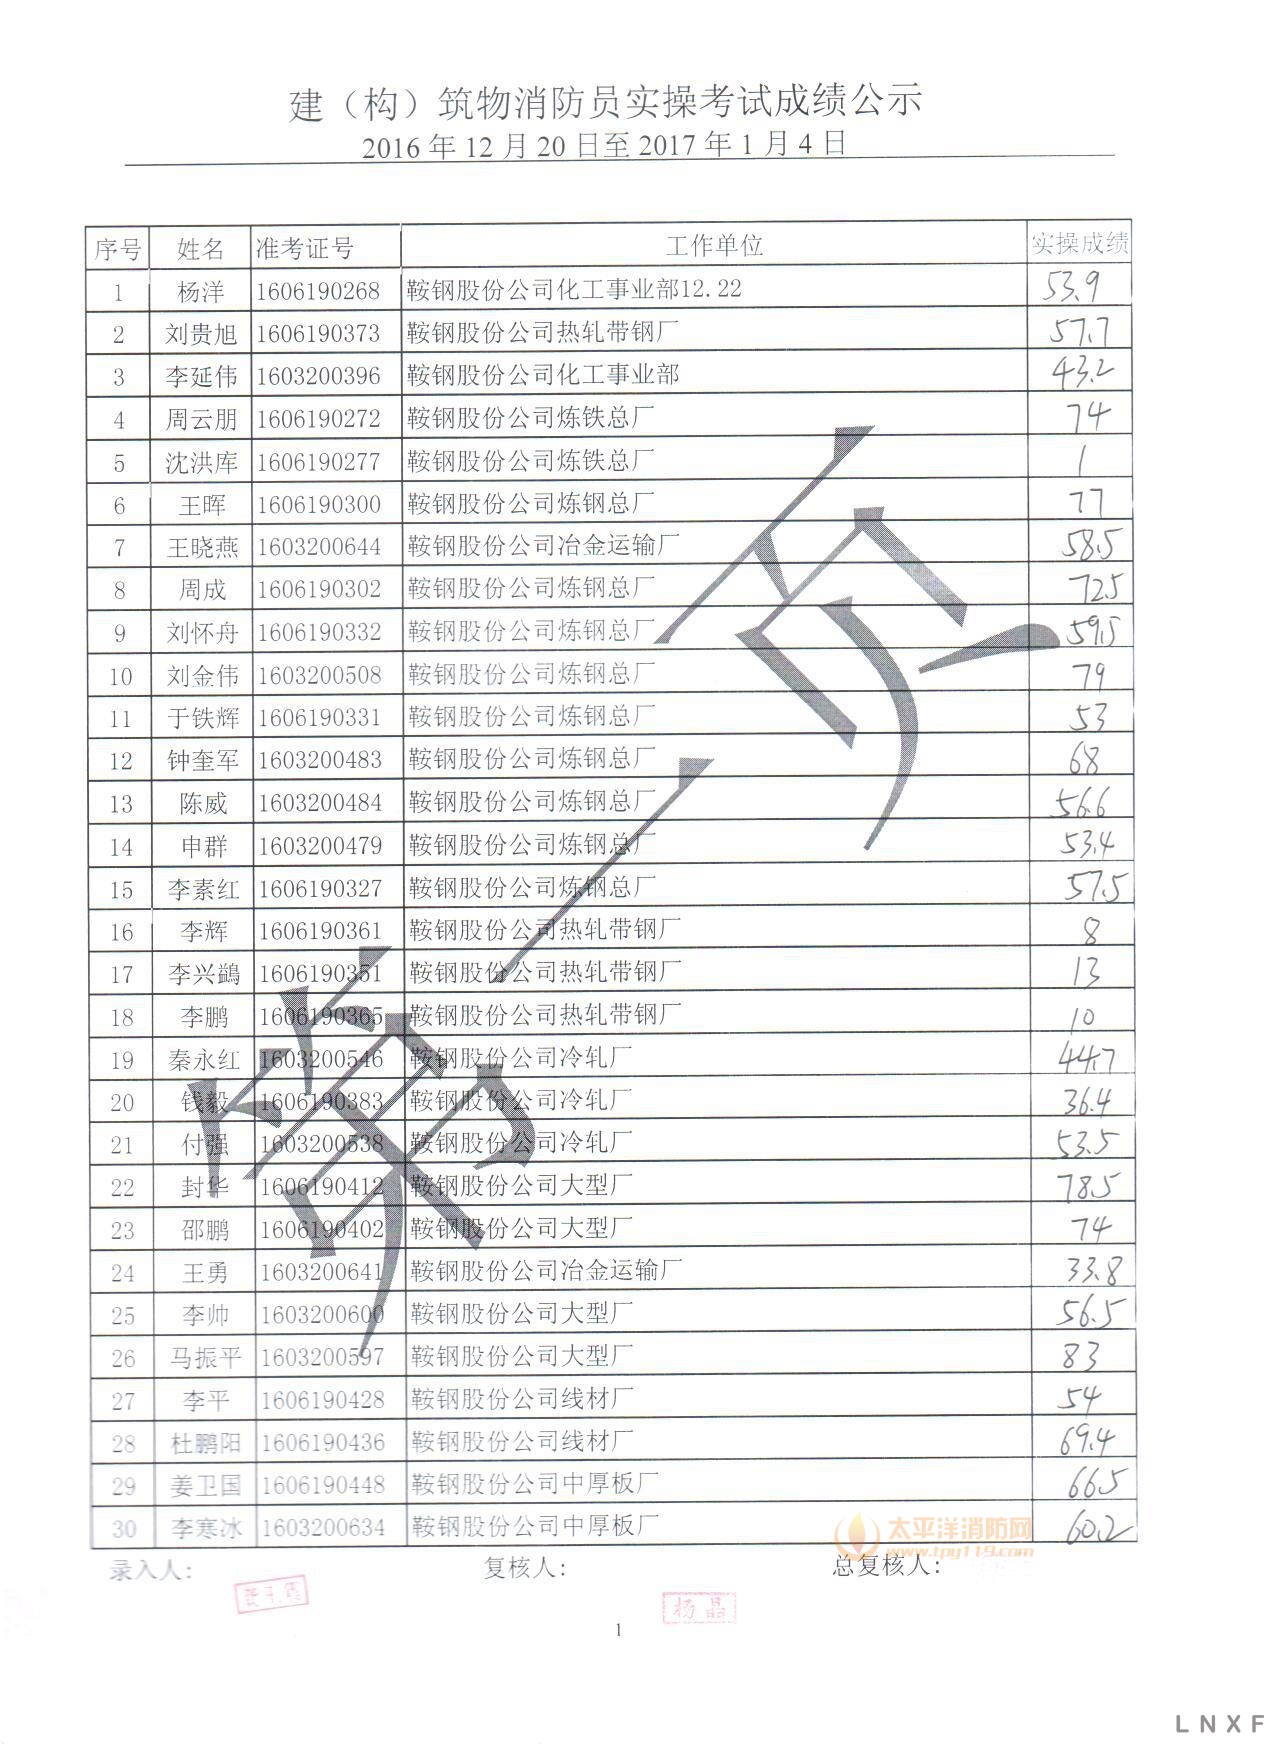 建（构）筑物消防员实操考试成绩公示
2016年12月20日至2017年1月4日
序号 姓名 准考证号 工作单位 实操成绩
1 杨洋 1606190268 鞍钢股份公司化工事业部12.22 53.9
2 刘贵旭 1606190373 鞍钢股份公司热轧带钢厂 57.7
3 李延伟 1603200396 鞍钢股份公司化工事业部 43.2
4 周云朋 1606190272 鞍钢股份公司炼铁总厂 74
5 沈洪库 1606190277 鞍钢股份公司炼铁总厂 1
6 王晖 1606190300 鞍钢股份公司炼钢总厂 77
7 王晓燕 1603200644 鞍钢股份公司冶金运输厂 58.5
8 周成 1606190302 鞍钢股份公司炼钢总厂 72.5
9 刘怀舟 1606190332 鞍钢股份公司炼钢总厂 59.5
10 刘金伟 1603200508 鞍钢股份公司炼钢总厂 79
11 于铁辉 1606190331 鞍钢股份公司炼钢总厂 53
12 钟奎军 1603200483 鞍钢股份公司炼钢总厂 68
13 陈威 1603200484 鞍钢股份公司炼钢总厂 56.6
14 申群 1603200479 鞍钢股份公司炼钢总厂 53.4
15 李素红 1606190327 鞍钢股份公司炼钢总厂 57.5
16 李辉 1606190361 鞍钢股份公司热轧带钢厂 8
17 李兴鷁 1606190351 鞍钢股份公司热轧带钢厂 13
18 李鹏 1606190365 鞍钢股份公司热轧带钢厂 10
19 秦永红 1603200546 鞍钢股份公司冷轧厂 44.7
20 钱毅 1606190383 鞍钢股份公司冷轧厂 36.4
21 付强 1603200538 鞍钢股份公司冷轧厂 53.5
22 封华 1606190412 鞍钢股份公司大型厂 78.5
23 邵鹏 1606190402 鞍钢股份公司大型厂 74
24 王勇 1603200641 鞍钢股份公司冶金运输厂 33.8
25 李帅 1603200600 鞍钢股份公司大型厂 56.5
26 马振平 1603200597 鞍钢股份公司大型厂 83
27 李平 1606190428 鞍钢股份公司线材厂 54
28 杜鹏阳 1606190436 鞍钢股份公司线材厂 69.4
29 姜卫国 1606190448 鞍钢股份公司中厚板厂 66.5
30 李寒冰 1603200634 鞍钢股份公司中厚板厂 60.2
第一页
太平洋消防网
www.tpy119.com
录入人： 复核人： 总复核人：
杨晶
1
LNXF